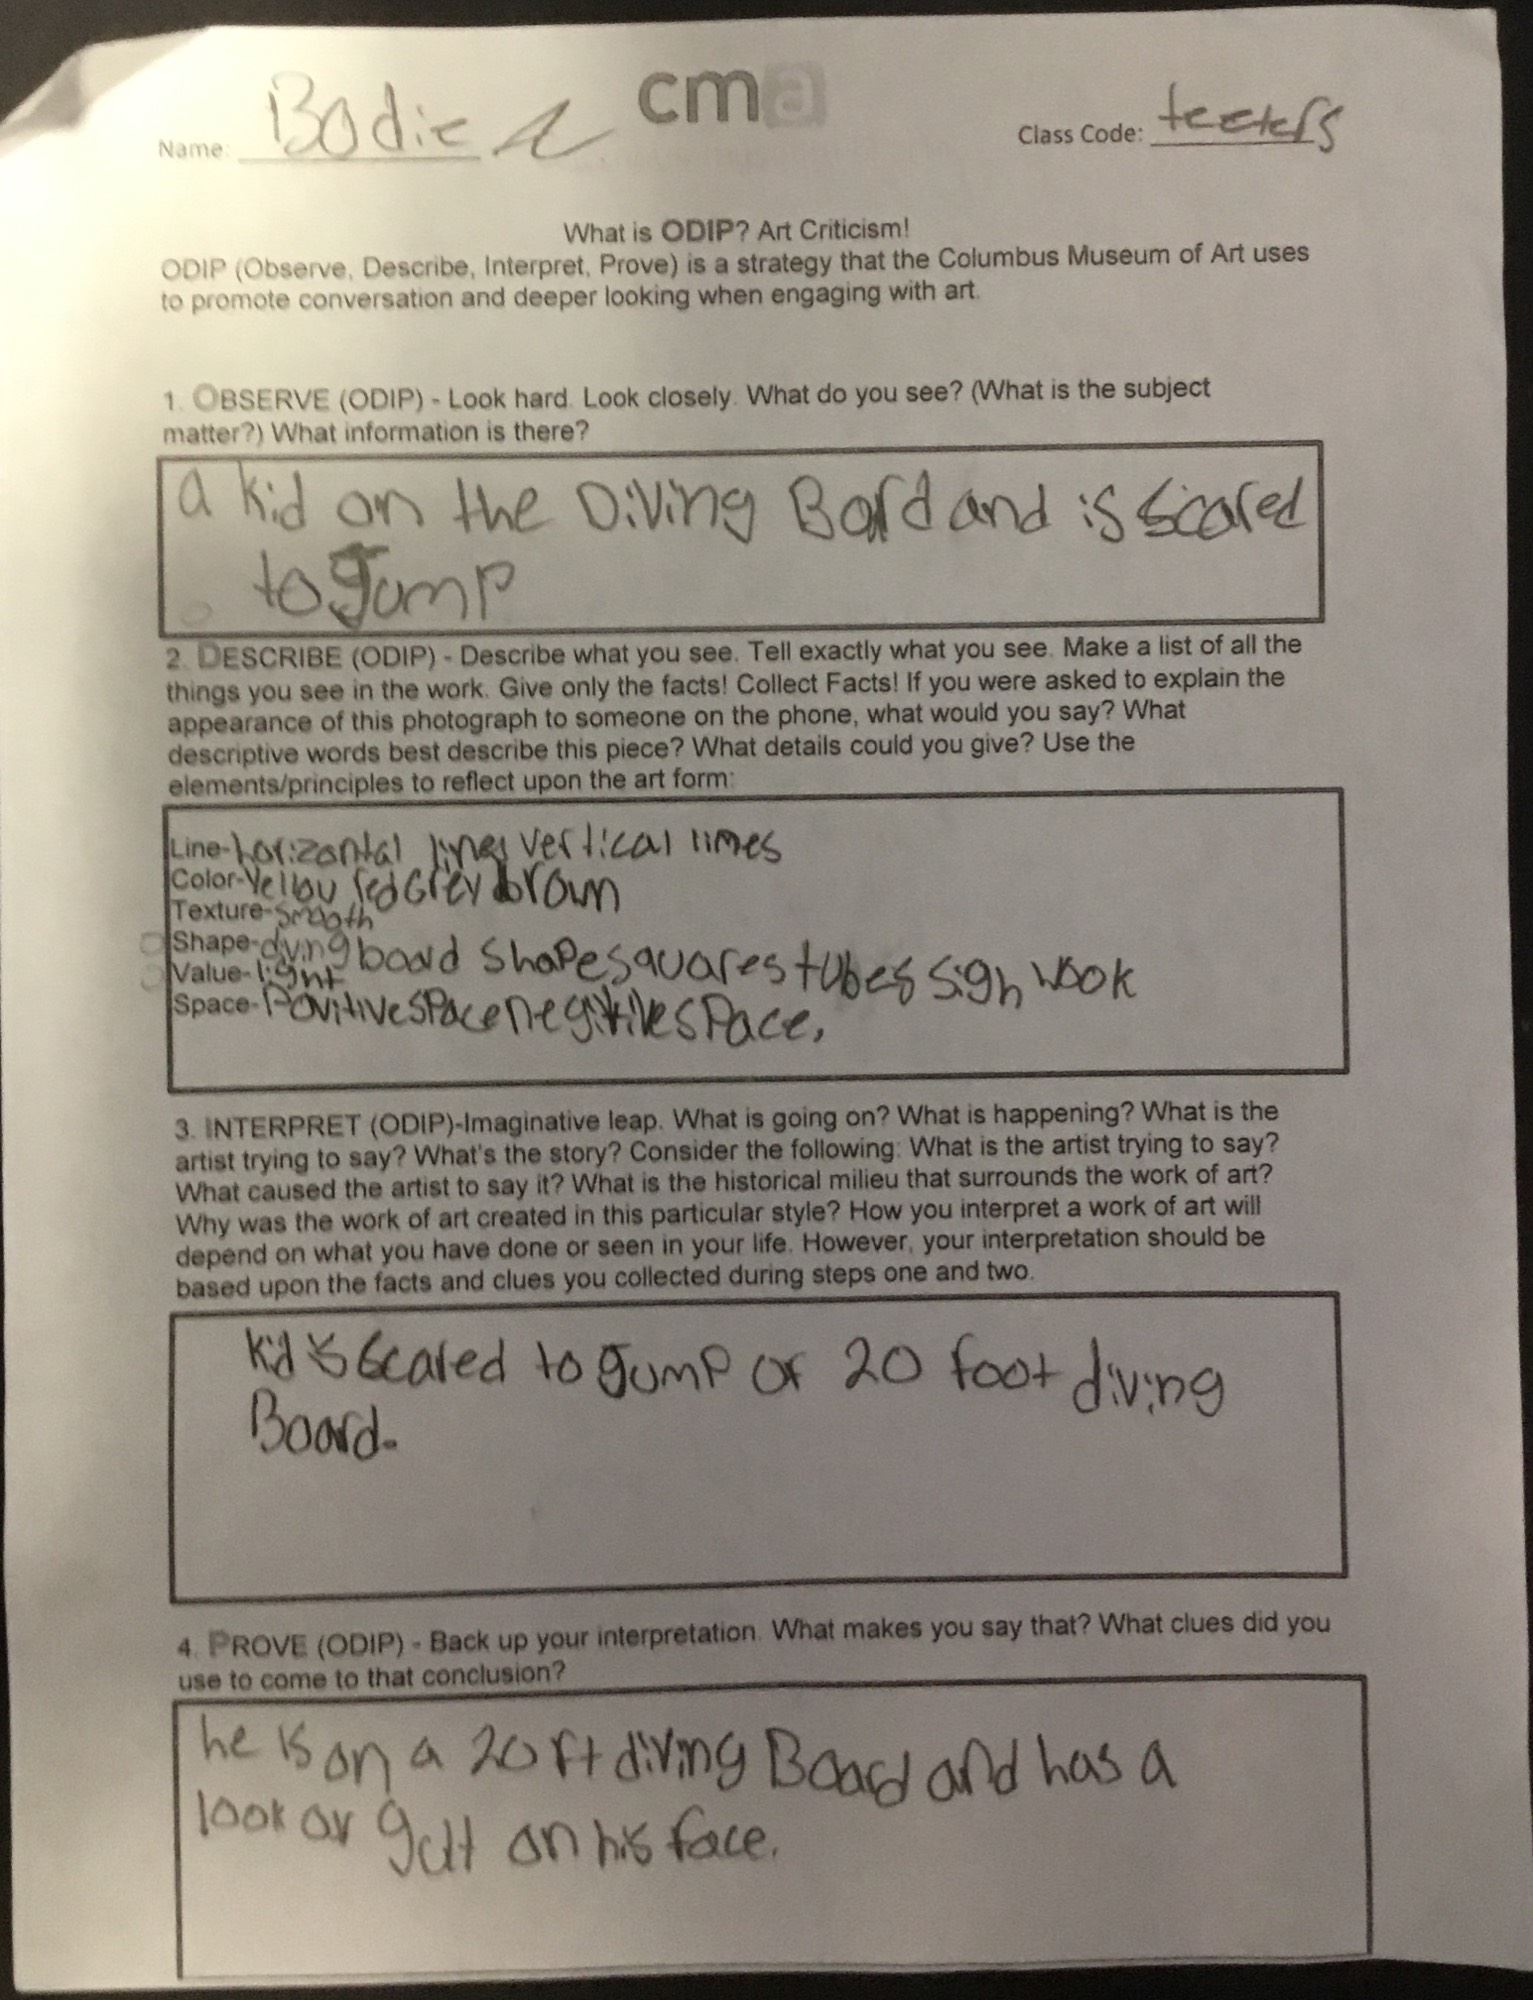 cma
Name: Bodie A
Class Code: teeters
What is ODIP? Art Criticism!
ODIP (Observe, Describe, Interpret, Prove) is a strategy that the Columbus Museum of Art uses
to promote conversation and deeper looking when engaging with art.
1. OBSERVE (ODIP) - Look hard. Look closely. What do you see? (What is the subject
matter?) What information is there?
a kid on the Diving Bord and is scared
to jump
2. DESCRIBE (ODIP) - Describe what you see. Tell exactly what you see. Make a list of all the
things you see in the work. Give only the facts! Collect Facts! If you were asked to explain the
appearance of this photograph to someone on the phone, what would you say? What
descriptive words best describe this piece? What details could you give? Use the
elements/principles to reflect upon the art form:
Line-horizontal lines vertical limes
Color-Yellou red Grey brown
Texture-smooth
Shape-diving board shape squares tubes sigh wook
Value-light
Space-Povitive space negitkive space,
3. INTERPRET (ODIP)-Imaginative leap. What is going on? What is happening? What is the
artist trying to say? What's the story? Consider the following: What is the artist trying to say?
What caused the artist to say it? What is the historical milieu that surrounds the work of art?
Why was the work of art created in this particular style? How you interpret a work of art will
depend on what you have done or seen in your life. However, your interpretation should be
based upon the facts and clues you collected during steps one and two.
kid is scared to jump of 20 foot diving
Board.
4. PROVE (ODIP) - Back up your interpretation. What makes you say that? What clues did you
use to come to that conclusion?
he is on a 20 ft diving Board and has a
look ov on his face.